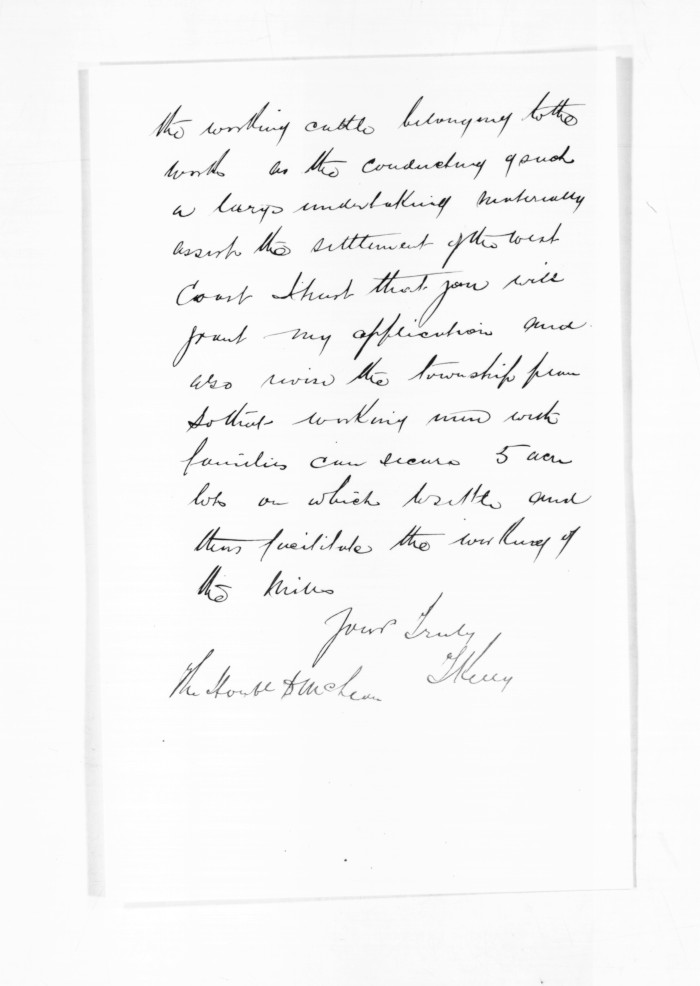 the working cattle belonging to the
works as the conducting of such
a large undertaking materially
assists the settlement of the West
Coast I trust that you will
grant my application and
also revise the township plan
so that working men with
families can secure 5 acre
lots on which to settle and
thus facilitate the working of
the Mills
Yours Truly
T Kelly
The Honble D McLean